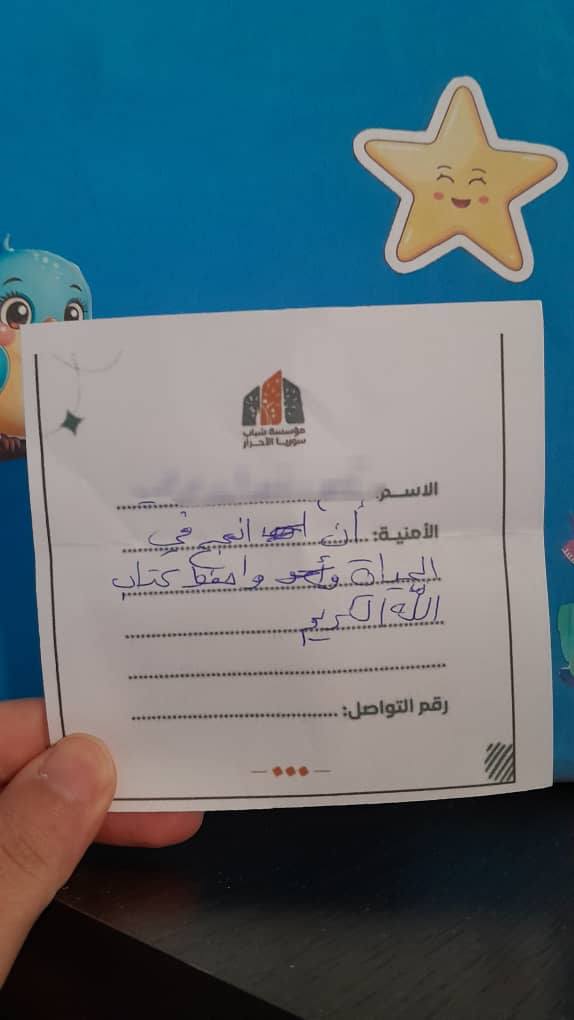 مؤسسة شباب
سوريا الأحرار
الاسم:
الأمنية: أن انجح في
الحياة و واحفظ كتاب
الله الكريم
رقم التواصل: